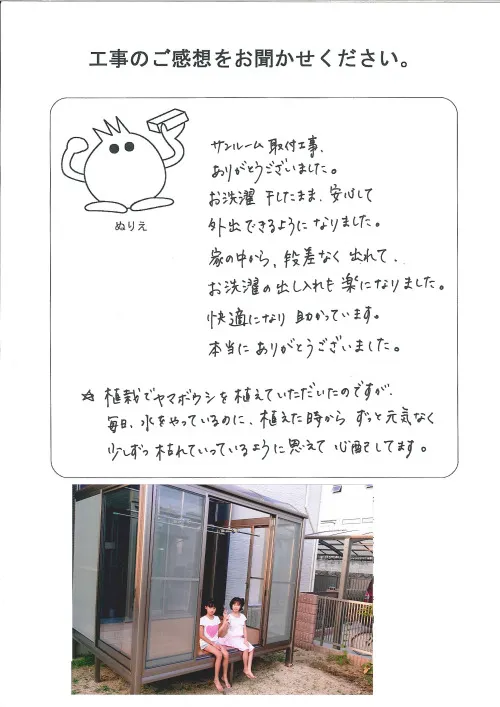 工事のご感想をお聞かせください。
ぬりえ
サンルーム取付工事、
ありがとうございました。
お洗濯 干したまま、安心して
外出できるように なりました。
家の中から、段差なく 出れて、
お洗濯の出し入れも 楽になりました。
快適になり 助かっています。
本当に ありがとうございました。
☆ 植栽でヤマボウシを植えていただいたのですが、
毎日、水をやっているのに、植えた時から ずっと元気なく
少しずつ 枯れていっているように思えて 心配してます。